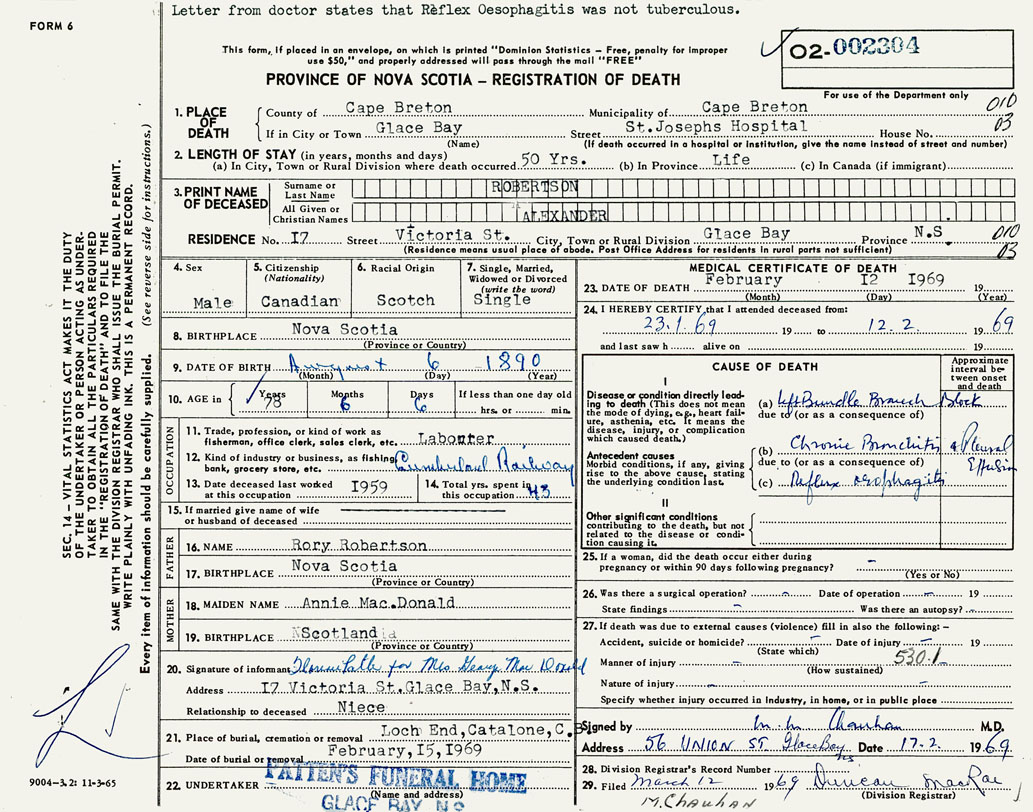 Letter from doctor states that Rèflex Oesophagitis was not tuberculous.
FORM 6
This form, if placed in an envelope, on which is printed "Dominion Statistics – Free, penalty for improper
use $50," and properly addressed will pass through the mail "FREE"
PROVINCE OF NOVA SCOTIA – REGISTRATION OF DEATH
02-002304
For use of the Department only
010
03
1. PLACE OF DEATH
County of Cape Breton Municipality of Cape Breton
If in City or Town Glace Bay Street St.Josephs Hospital House No.
(Name) (If death occurred in a hospital or institution, give the name instead of street and number)
2. LENGTH OF STAY (in years, months and days)
(a) In City, Town or Rural Division where death occurred 50 Yrs. (b) In Province Life (c) In Canada (if immigrant)
3. PRINT NAME OF DECEASED
Surname or Last Name ROBERTSON
All Given or Christian Names ALEXANDER
RESIDENCE No. I7 Street Victoria St. City, Town or Rural Division Glace Bay Province N.S
(Residence means usual place of abode. Post Office Address for residents in rural parts not sufficient)
010
03
4. Sex
Male
5. Citizenship
(Nationality)
Canadian
6. Racial Origin
Scotch
7. Single, Married,
Widowed or Divorced
(write the word)
Single
8. BIRTHPLACE Nova Scotia
(Province or Country)
9. DATE OF BIRTH August 6 1890
(Month) (Day) (Year)
10. AGE in Years Months Days If less than one day old
78 6 6 hrs. or min.
OCCUPATION
11. Trade, profession, or kind of work as
fisherman, office clerk, sales clerk, etc. Labourer
12. Kind of industry or business, as fishing,
bank, grocery store, etc. Cumberland Railway
13. Date deceased last worked
at this occupation I959
14. Total yrs. spent in
this occupation 43
15. If married give name of wife
or husband of deceased
FATHER
16. NAME Rory Robertson
17. BIRTHPLACE Nova Scotia
(Province or Country)
MOTHER
18. MAIDEN NAME Annie Mac.Donald
19. BIRTHPLACE Scotland
(Province or Country)
20. Signature of informant for Mrs Mac Donald
Address I7 Victoria St.Glace Bay,N.S.
Relationship to deceased Niece
21. Place of burial, cremation or removal Loch End,Catalone,C.B
Date of burial or removal February,I5,I969
22. UNDERTAKER PATTEN'S FUNERAL HOME
(Name and address)
GLACE BAY N.S
MEDICAL CERTIFICATE OF DEATH
23. DATE OF DEATH February I2 I969 19
(Month) (Day) (Year)
24. I HEREBY CERTIFY that I attended deceased from:
23.1.69 19 to 12.2. 1969
and last saw h alive on 19
CAUSE OF DEATH
Approximate
interval be-
tween onset
and death
I
Disease or condition directly lead-
ing to death (This does not mean
the mode of dying, e.g., heart fail-
ure, asthenia, etc. It means the
disease, injury, or complication
which caused death.)
(a) Left Bundle Branch Block
due to (or as a consequence of)
Antecedent causes
Morbid conditions, if any, giving
rise to the above cause, stating
the underlying condition last.
(b) Chronic Bronchitis & Pleural Effusion
due to (or as a consequence of)
(c) Reflux oesophagitis
II
Other significant conditions
contributing to the death, but not
related to the disease or condi-
tion causing it.
25. If a woman, did the death occur either during
pregnancy or within 90 days following pregnancy? –
(Yes or No)
26. Was there a surgical operation? – Date of operation – 19
State findings – Was there an autopsy? –
27. If death was due to external causes (violence) fill in also the following: –
Accident, suicide or homicide? – Date of injury – 19
(State which)
530.1
Manner of injury –
(How sustained)
Nature of injury –
Specify whether injury occurred in industry, in home, or in public place
Signed by M. Chauhan M.D.
Address 56 UNION ST. Glace Bay NS Date 17.2. 1969.
28. Division Registrar's Record Number
29. Filed March 12 1969 Duncan MacRae
(Division Registrar)
M. Chauhan
SEC. 14 – VITAL STATISTICS ACT MAKES IT THE DUTY
OF THE UNDERTAKER OR PERSON ACTING AS UNDER-
TAKER TO OBTAIN ALL THE PARTICULARS REQUIRED
IN THE "REGISTRATION OF DEATH" AND TO FILE THE
SAME WITH THE DIVISION REGISTRAR WHO SHALL ISSUE THE BURIAL PERMIT.
WRITE PLAINLY WITH UNFADING INK. THIS IS A PERMANENT RECORD.
Every item of information should be carefully supplied. (See reverse side for instructions.)
9004-3.2: 11-3-65